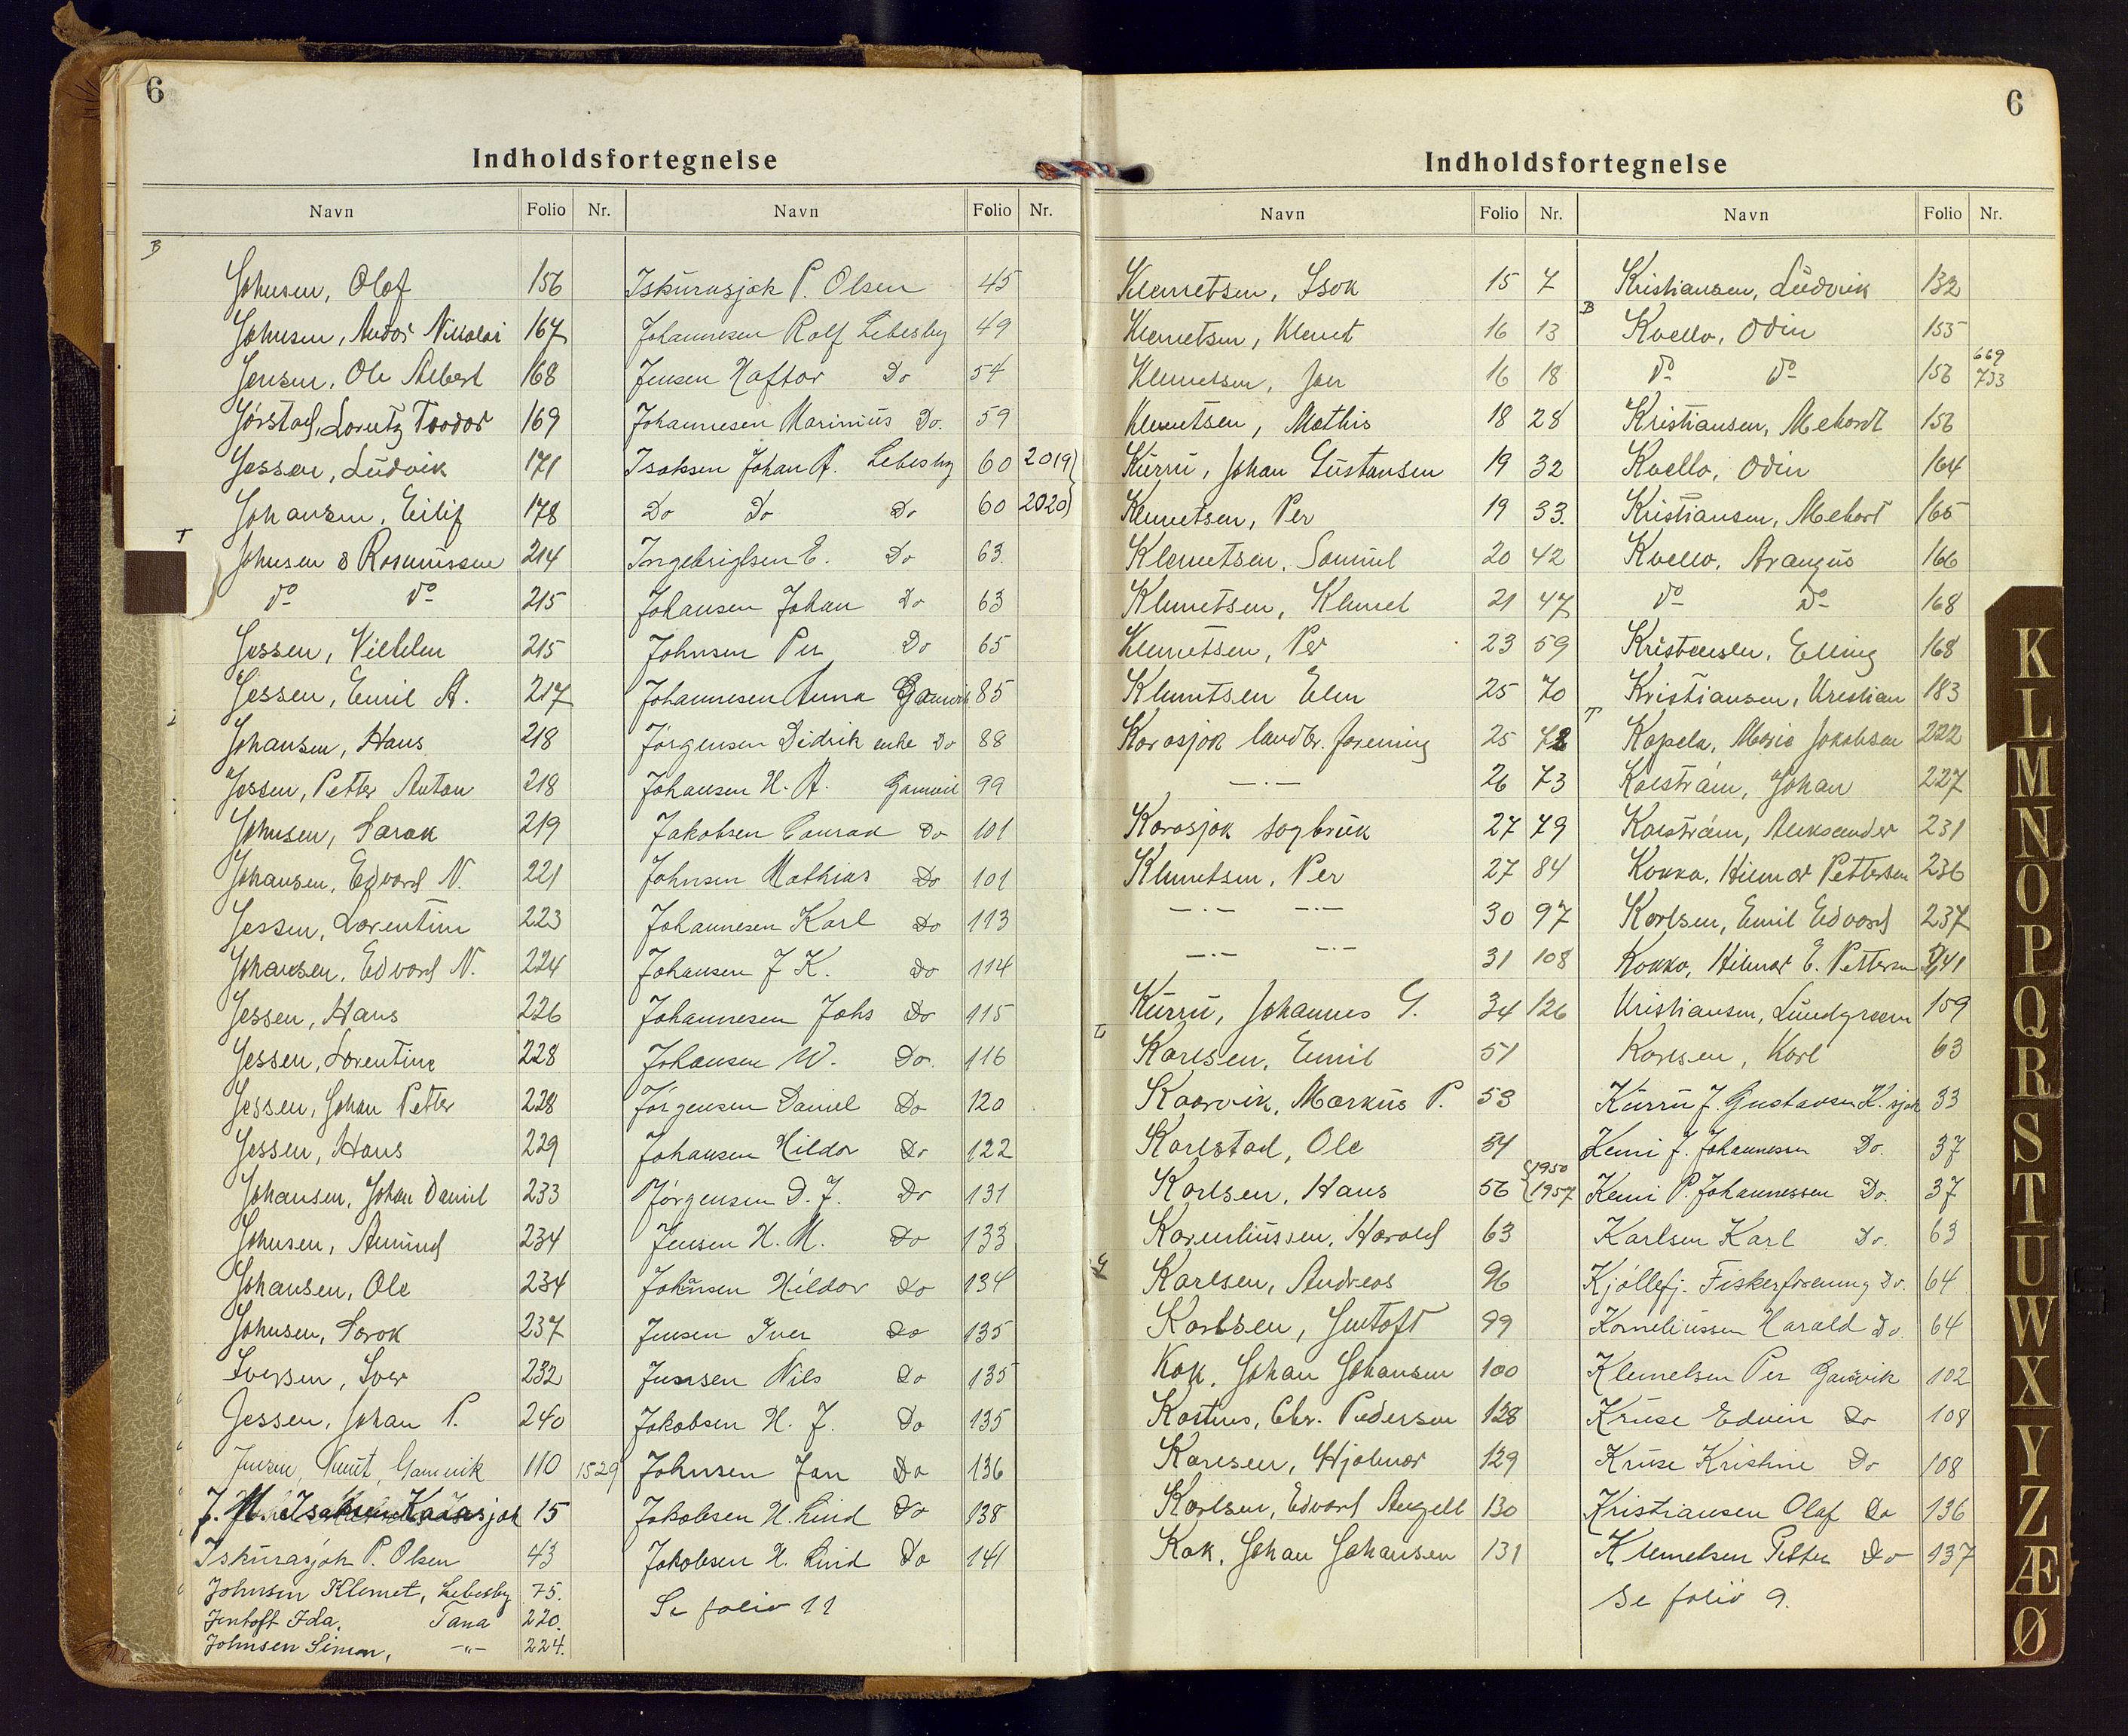 6
Indholdsfortegnelse
Navn Folio Nr. Navn Folio Nr.
B
Johnsen, Olaf 156
Johnsen, Andor Nikolai 167
Jensen, Ole Albert 168
Jørstad, Lorentz Teodor 169
Jessen, Ludvik 171
Johansen, Eilif 178
T
Johnsen & Rasmussen 214
do do 215
Jessen, Vilhelm 215
Jessen, Emil A. 217
Johansen, Hans 218
Jessen, Petter Anton 218
Johnsen, Sarak 219
Johansen, Edvard N. 221
Jessen, Lorentine 223
Johansen, Edvard N. 224
Jessen, Hans 226
Jessen, Lorentine 228
Jessen, Johan Petter 228
Jessen, Hans 229
Johansen, Johan Daniel 233
Johnsen, Amund 234
Johansen, Ole 234
Johnsen, Sarak 237
Iversen, Iver 232
Jessen, Johan P. 240
Jensen, Knut, Gamvik 110 1529
J. M. Isaksen Karasjok 15
Iskurasjok P. Olsen 43
Johnsen Klemet, Lebesby 75.
Jentoft Ida. Tana 220.
Johnsen Simon, -"- 224.
Iskurasjok P. Olsen 45
Johannesen Rolf Lebesby 49
Jensen Haftor Do 54
Johannesen Marinius Do. 59
Isaksen Johan A. Lebesby 60 2019
Do Do Do 60 2020
Ingebrigtsen E. Do 63.
Johansen Johan Do 63
Johnsen Per Do 65
Johannesen Anna Gamvik 85
Jørgensen Didrik enke Do 88
Johansen H. A. Gamvik 99
Jakobsen Conrad Do 101
Johnsen Mathias Do 101
Johannesen Karl Do 113
Johansen J K. Do 114
Johannesen Johs Do 115
Johansen W. Do. 116
Jørgensen Daniel Do 120
Johansen Hildor Do 122
Jørgensen D. J. Do 131
Jensen H. M. Do 133
Johnsen Hildor Do 134
Jensen Iver Do 135
Jensen Nils Do 135
Jakobsen H. J. Do 135
Johnsen Jan Do 136
Jakobsen H. Lind Do 138
Jakobsen H. Lind Do 141
Se folio 11
6
Indholdsfortegnelse
Navn Folio Nr. Navn Folio Nr.
Klemetsen, Isak 15 7
Klemetsen, Klemet 16 13
Klemetsen, Jon 16 18
Klemetsen, Mathis 18 28
Kurru, Johan Gustavsen 19 32
Klemetsen, Per 19 33.
Klemetsen, Samuel 20 42
Klemetsen, Klemet 21 47
Klemetsen, Per 23 59
Klemetsen Elen 25 70
Karasjok landbr. forening 25 72
—·— 26 73
Karasjok sagbruk 27 79
Klemetsen, Per 27 84
—·— —·— 30 97
—·— —·— 31 108
Kurru, Johannes G. 34 126
L
Karlsen, Emil 51
Kaarvik, Markus P. 53
Karlstad, Ole 54
Karlsen, Hans 56 {1950 1957
Kornelinssen, Harald 63
G
Karlsen, Andreas 96
Karlsen, Gentoft 99
Kok, Johan Johansen 100
Kostnes, Chr. Pedersen 128
Karlsen, Hjalmar 129
Karlsen, Edvart Angell 130
Kok, Johan Johansen 131
Kristiansen, Ludvik 132
B
Kvello, Odin 155
do do 156 669 733
Kristiansen, Mehardt 156
Kvello, Odin 164
Kristiansen, Mehart 165
Kvello, Arangus 166
do Do 168
Kristensen, Elling 168
Kristiansen, Kristian 183
T
Kapela, Marie Jakobsen 222
Kolstrøm, Johan 227
Kolstrøm, Aleksander 231
Kokko, Hilmar Pettersen 236
Karlsen, Emil Edvard 237
Kokko, Hilmar E. Pettersen 241
Kristiansen, Lundgreen 159
Karlsen, Karl 63
Kurru J. Gustavsen K.sjok 33
Kemi J. Johannessen Do. 37
Kemi P. Johannessen Do. 37
Karlsen Karl Do. 63
Kjøllefj. Fiskerforening Do. 64
Korneliussen Harald Do. 64
Klemetsen Per Gamvik 102
Kruse Edvin Do 108
Kruse Kristine Do 108
Kristiansen Olaf Do 136
Klemetsen Petter Do 137
Se folio 9.
K
L
M
N
O
P
Q
R
S
T
U
W
X
Y
Z
Æ
Ø